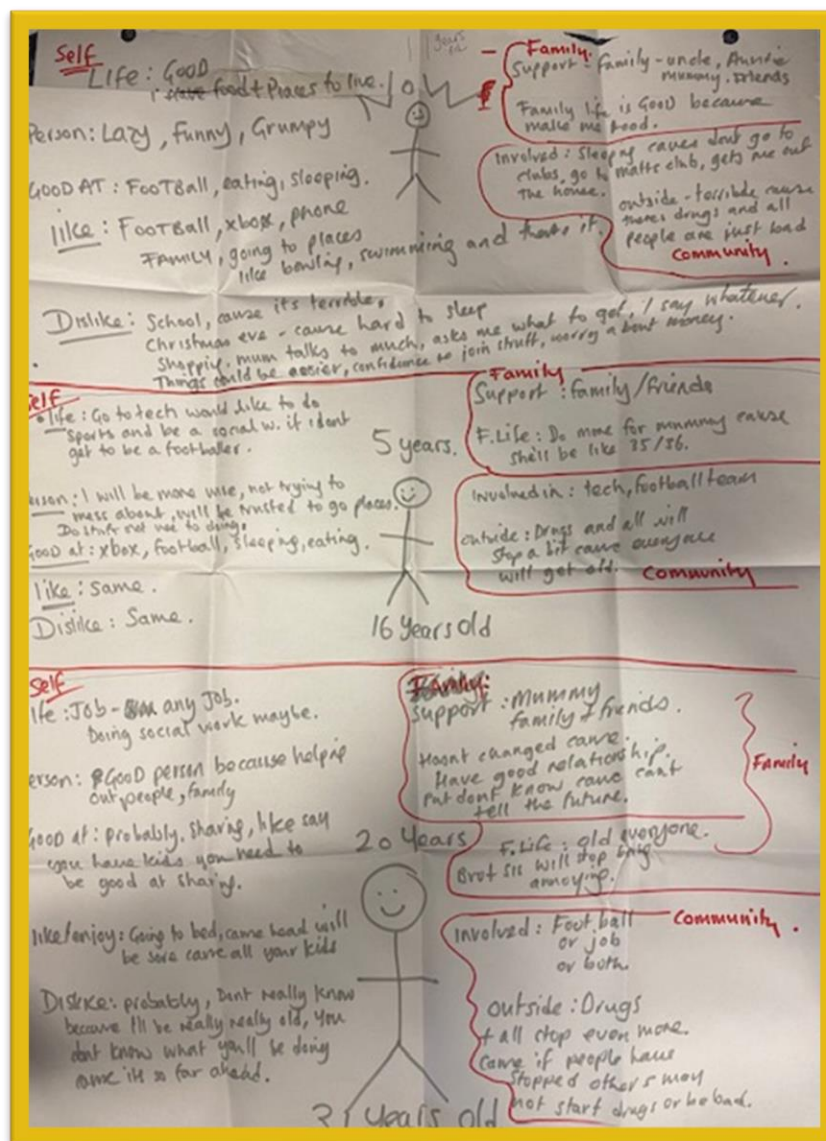 Self
Life: GOOD
food + Places to live.
Person: Lazy, funny, Grumpy
GOOD AT: FOOTBall, eating, sleeping.
like: FOOTBall, xbox, phone
FAMILY, going to places
like bowling, swimming and thats it.
Dislike: School, cause its terrible,
Christmas eve - cause hard to sleep
Shopping, mum talks to much, asks me what to get, I say whatever.
Things could be easier, confidence to join stuff, worry about money.
- Family:
Support - family - uncle, Auntie
mummy, friends
Family life is GOOD because
make me food.
Involved: Sleeping cause dont go to
clubs, go to matts club, gets me out
the house.
outside - terrible cause
theres drugs and all
people are just bad
Community.
Self
life: Go to tech would like to do
sports and be a social w. if i dont
get to be a footballer.
Person: I will be more wise, not trying to
mess about, will be trusted to go places.
Do stuff not use to doing.
GOOD at: xbox, football, sleeping, eating.
like: same.
Dislike: Same.
5 years.
16 years old
Family
Support: family/friends
F.Life: Do more for mummy cause
she'll be like 35/36.
Involved in: tech, football team
outside: Drugs and all will
stop a bit cause everyone
will get old. Community
Self
life: JOB - any JOB.
Doing social work maybe.
Person: GOOD person because helping
out people, family
Good at: probably, sharing, like say
you have kids you need to
be good at sharing.
like/enjoy: Going to bed, cause head will
be sore cause all your kids
Dislike: probably, Dont really know
because I'll be really really old, you
dont know what you'll be doing
cause its so far ahead.
20 years
years old
Family:
Support: Mummy
family + friends.
Hasnt changed cause.
Have good relationship.
but dont know cause cant
tell the future.
Family
F.Life: old everyone.
Bro + sis will stop being
annoying.
Community.
Involved: Football
or job
or both.
outside: Drugs
+ all stop even more.
Cause if people have
stopped others may
not start drugs or be bad.